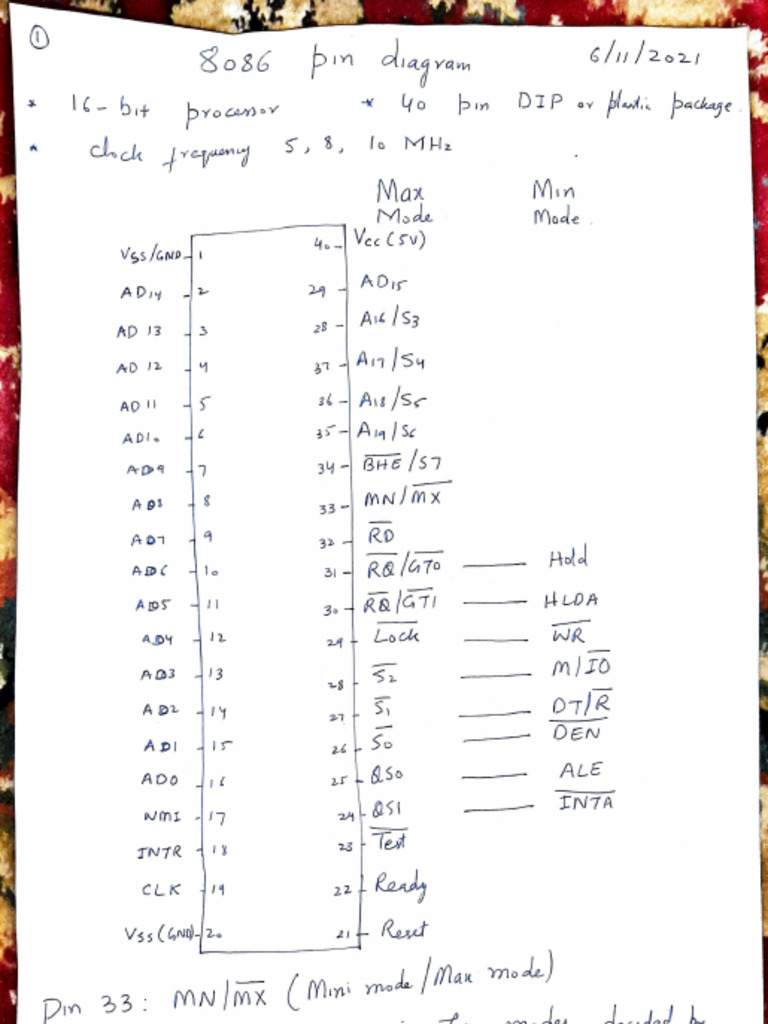 1
8086 pin diagram 6/11/2021
* 16-bit processor * 40 pin DIP or plastic package.
* clock frequency 5, 8, 10 MHz
Max Mode Min Mode
VSS/GND 1 40 Vcc (5V)
AD14 2 29 AD15
AD 13 3 28 A16/S3
AD 12 4 37 A17/S4
AD 11 5 36 A18/S5
AD10 6 35 A19/S6
AD9 7 34 B̅H̅E̅/S7
AD8 8 33 MN/M̅X̅
AD7 9 32 R̅D̅
AD6 10 31 R̅Q̅/G̅T̅0̅ Hold
AD5 11 30 R̅Q̅/G̅T̅1̅ HLDA
AD4 12 29 L̅o̅c̅k̅ W̅R̅
AD3 13 28 S̅2̅ M/I̅O̅
AD2 14 27 S̅1̅ DT/R̅
AD1 15 26 S̅0̅ D̅E̅N̅
AD0 16 25 QS0 ALE
NMI 17 24 QS1 I̅N̅T̅A̅
INTR 18 23 T̅e̅s̅t̅
CLK 19 22 Ready
VSS (GND) 20 21 Reset
Pin 33: MN/M̅X̅ (Mini mode/Max mode)
modes decided by